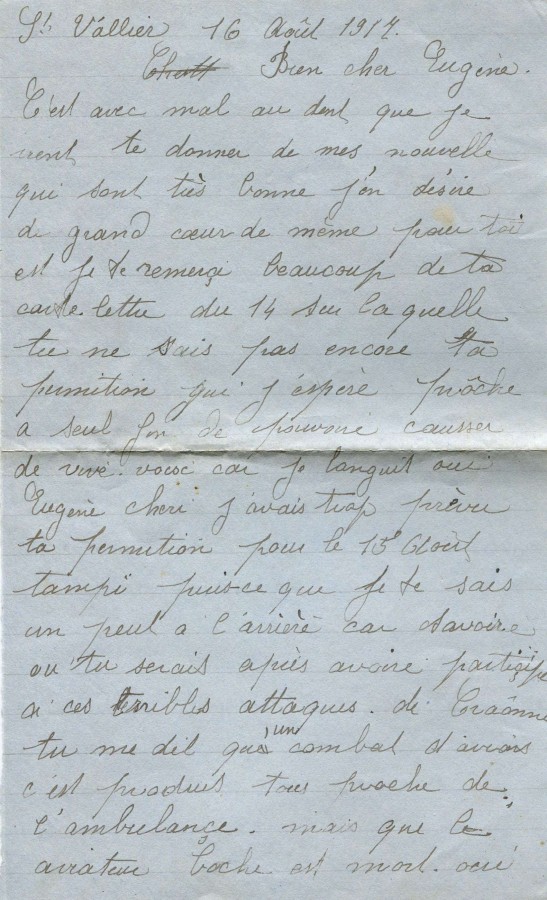 St Vallier 16 Août 1917.
Bien cher Eugène.
C'est avec mal au dent que je
vient te donner de mes nouvelle
qui sont très bonne j'en désire
de grand cœur de même pour toi
est je te remerçi beaucoup de ta
carte lettre du 14 sur la quelle
tu ne sais pas encore ta
permition qui j'espère prôche
a seul fin de pouvoire causser
de vive voix car je languit oui
Eugène cheri j'avais trop prévu
ta permition pour le 15 Août
tampi puisce que je te sais
un peut a l'arrière car savoire
ou tu serais après avoire partiçipé
a ces terribles attaques. de Craônne
tu me dit que un combat d'avions
c'est produit tous proche de
l'ambulance. mais que le
aviateur boche est mort. oui